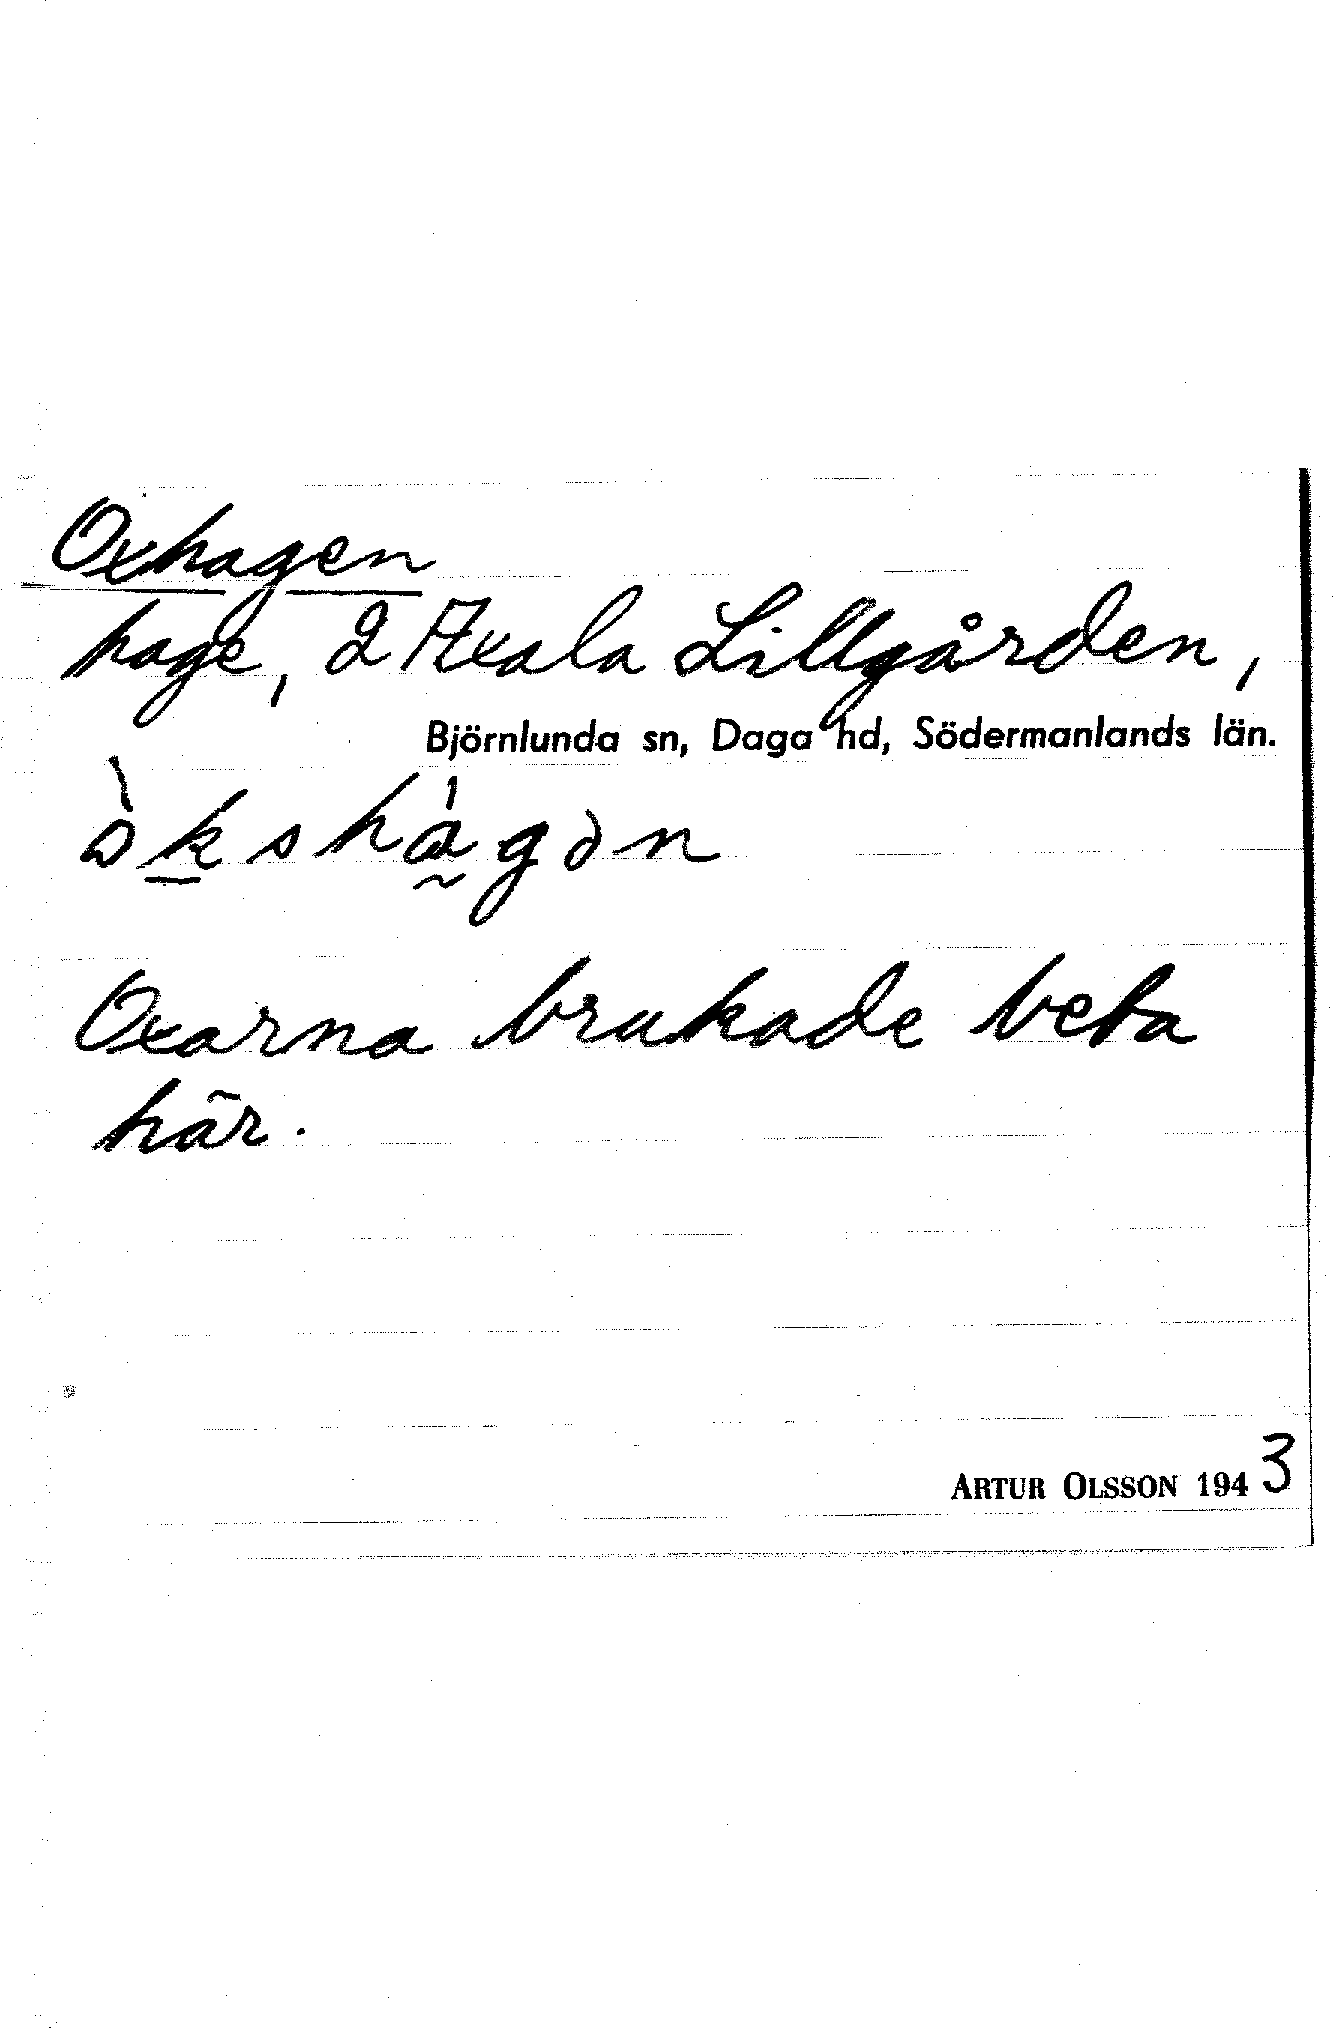 Oxhagen
hage, 2 Axala Lillgården,
Björnlunda sn, Daga hd, Södermanlands län.
Oxarna brukade beta
här.
ARTUR OLSSON 1943